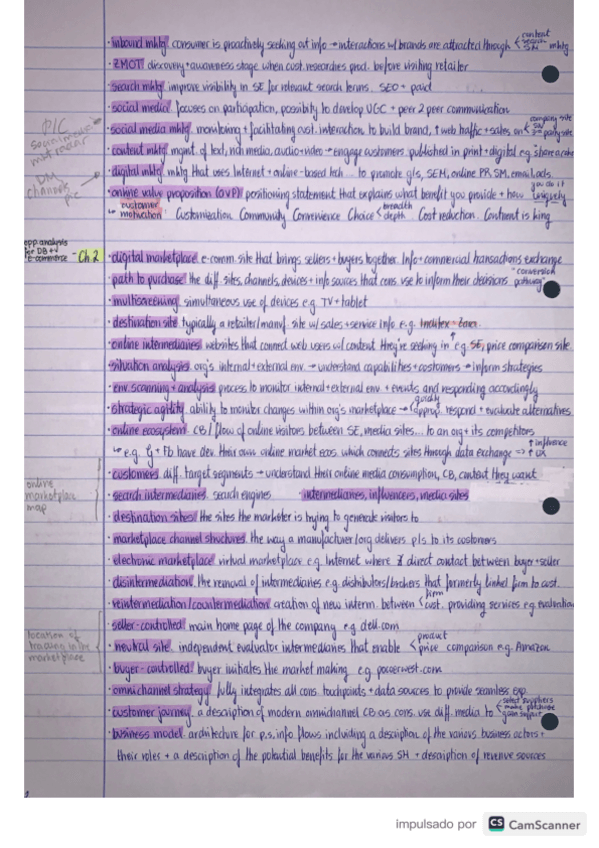 · inbound mktg consumer is proactively seeking out info → interactions w/ brands are attracted through < content search SM mktg
· ZMOT discovery + awareness stage when cust. researches prod. before visiting retailer
· search mktg improve visibility in SE for relevant search terms. SEO + paid
· social media focuses on participation, possibility to develop UGC + peer 2 peer communication
PIC
social media
· social media mktg monitoring + facilitating cust. interaction to build brand, ↑ web traffic + sales on < company site
· content mktg mgmt. of text, rich media, audio + video → engage customers. published in print + digital e.g.
DM channels pic
· digital mktg mktg that uses Internet + online-based tech to promote g/s, SEM, online PR, SM, email, ads.
· online value proposition (OVP) positioning statement that explains what benefit you provide + how you do it uniquely
↳ customer motivation: Customization Community Convenience Choice < breadth depth Cost reduction. Content is king
opp. analysis for DB + e-commerce - Ch 2
· digital marketplace e-comm. site that brings sellers + buyers together. Info + commercial transactions exchange
· path to purchase the diff. sites, channels, devices + info sources that cons. use to inform their decisions "conversion pathway"
· multiscreening simultaneous use of devices e.g. TV + tablet
· destination site typically a retailer/manf. site w/ sales + service info e.g.
· online intermediaries websites that connect web users w/ content they're seeking in e.g. SE, price comparison site
· situation analysis org's internal + external env. → understand capabilities + customers → inform strategies
· env. scanning + analysis process to monitor internal + external env. + events and responding accordingly
· strategic agility ability to monitor changes within org's marketplace → < quickly approp. respond + evaluate alternatives
· online ecosystem CB / flow of online visitors between SE, media sites... to an org + its competitors
↳ e.g. G + FB have dev. their own online market ecos. which connects sites through data exchange => ↑ influence ↑ UX
· customers diff. target segments → understand their online media consumption, CB, content they want
online marketplace map
· search intermediaries. search engines intermediaries, influencers, media sites
· destination sites the sites the marketer is trying to generate visitors to
· marketplace channel structures the way a manufacturer/org delivers p/s to its customers
· electronic marketplace virtual marketplace e.g. Internet where direct contact between buyer + seller
· disintermediation. the removal of intermediaries e.g. distributors/brokers that formerly linked firm to cust.
· reintermediation/countermediation creation of new interm. between < firm cust. providing services e.g. evaluation
· seller-controlled main home page of the company e.g. dell.com
location of trading in the marketplace
· neutral site independent evaluator intermediaries that enable < product price comparison e.g. Amazon
· buyer-controlled buyer initiates the market making e.g.
· omnichannel strategy fully integrates all cons. touchpoints + data sources to provide seamless exp.
· customer journey a description of modern omnichannel CB as cons. use diff. media to < select suppliers make purchase gain support
· business model architecture for p.s, info flows including a description of the various business actors +
their roles + a description of the potential benefits for the various SH + description of revenue sources
impulsado por CS CamScanner